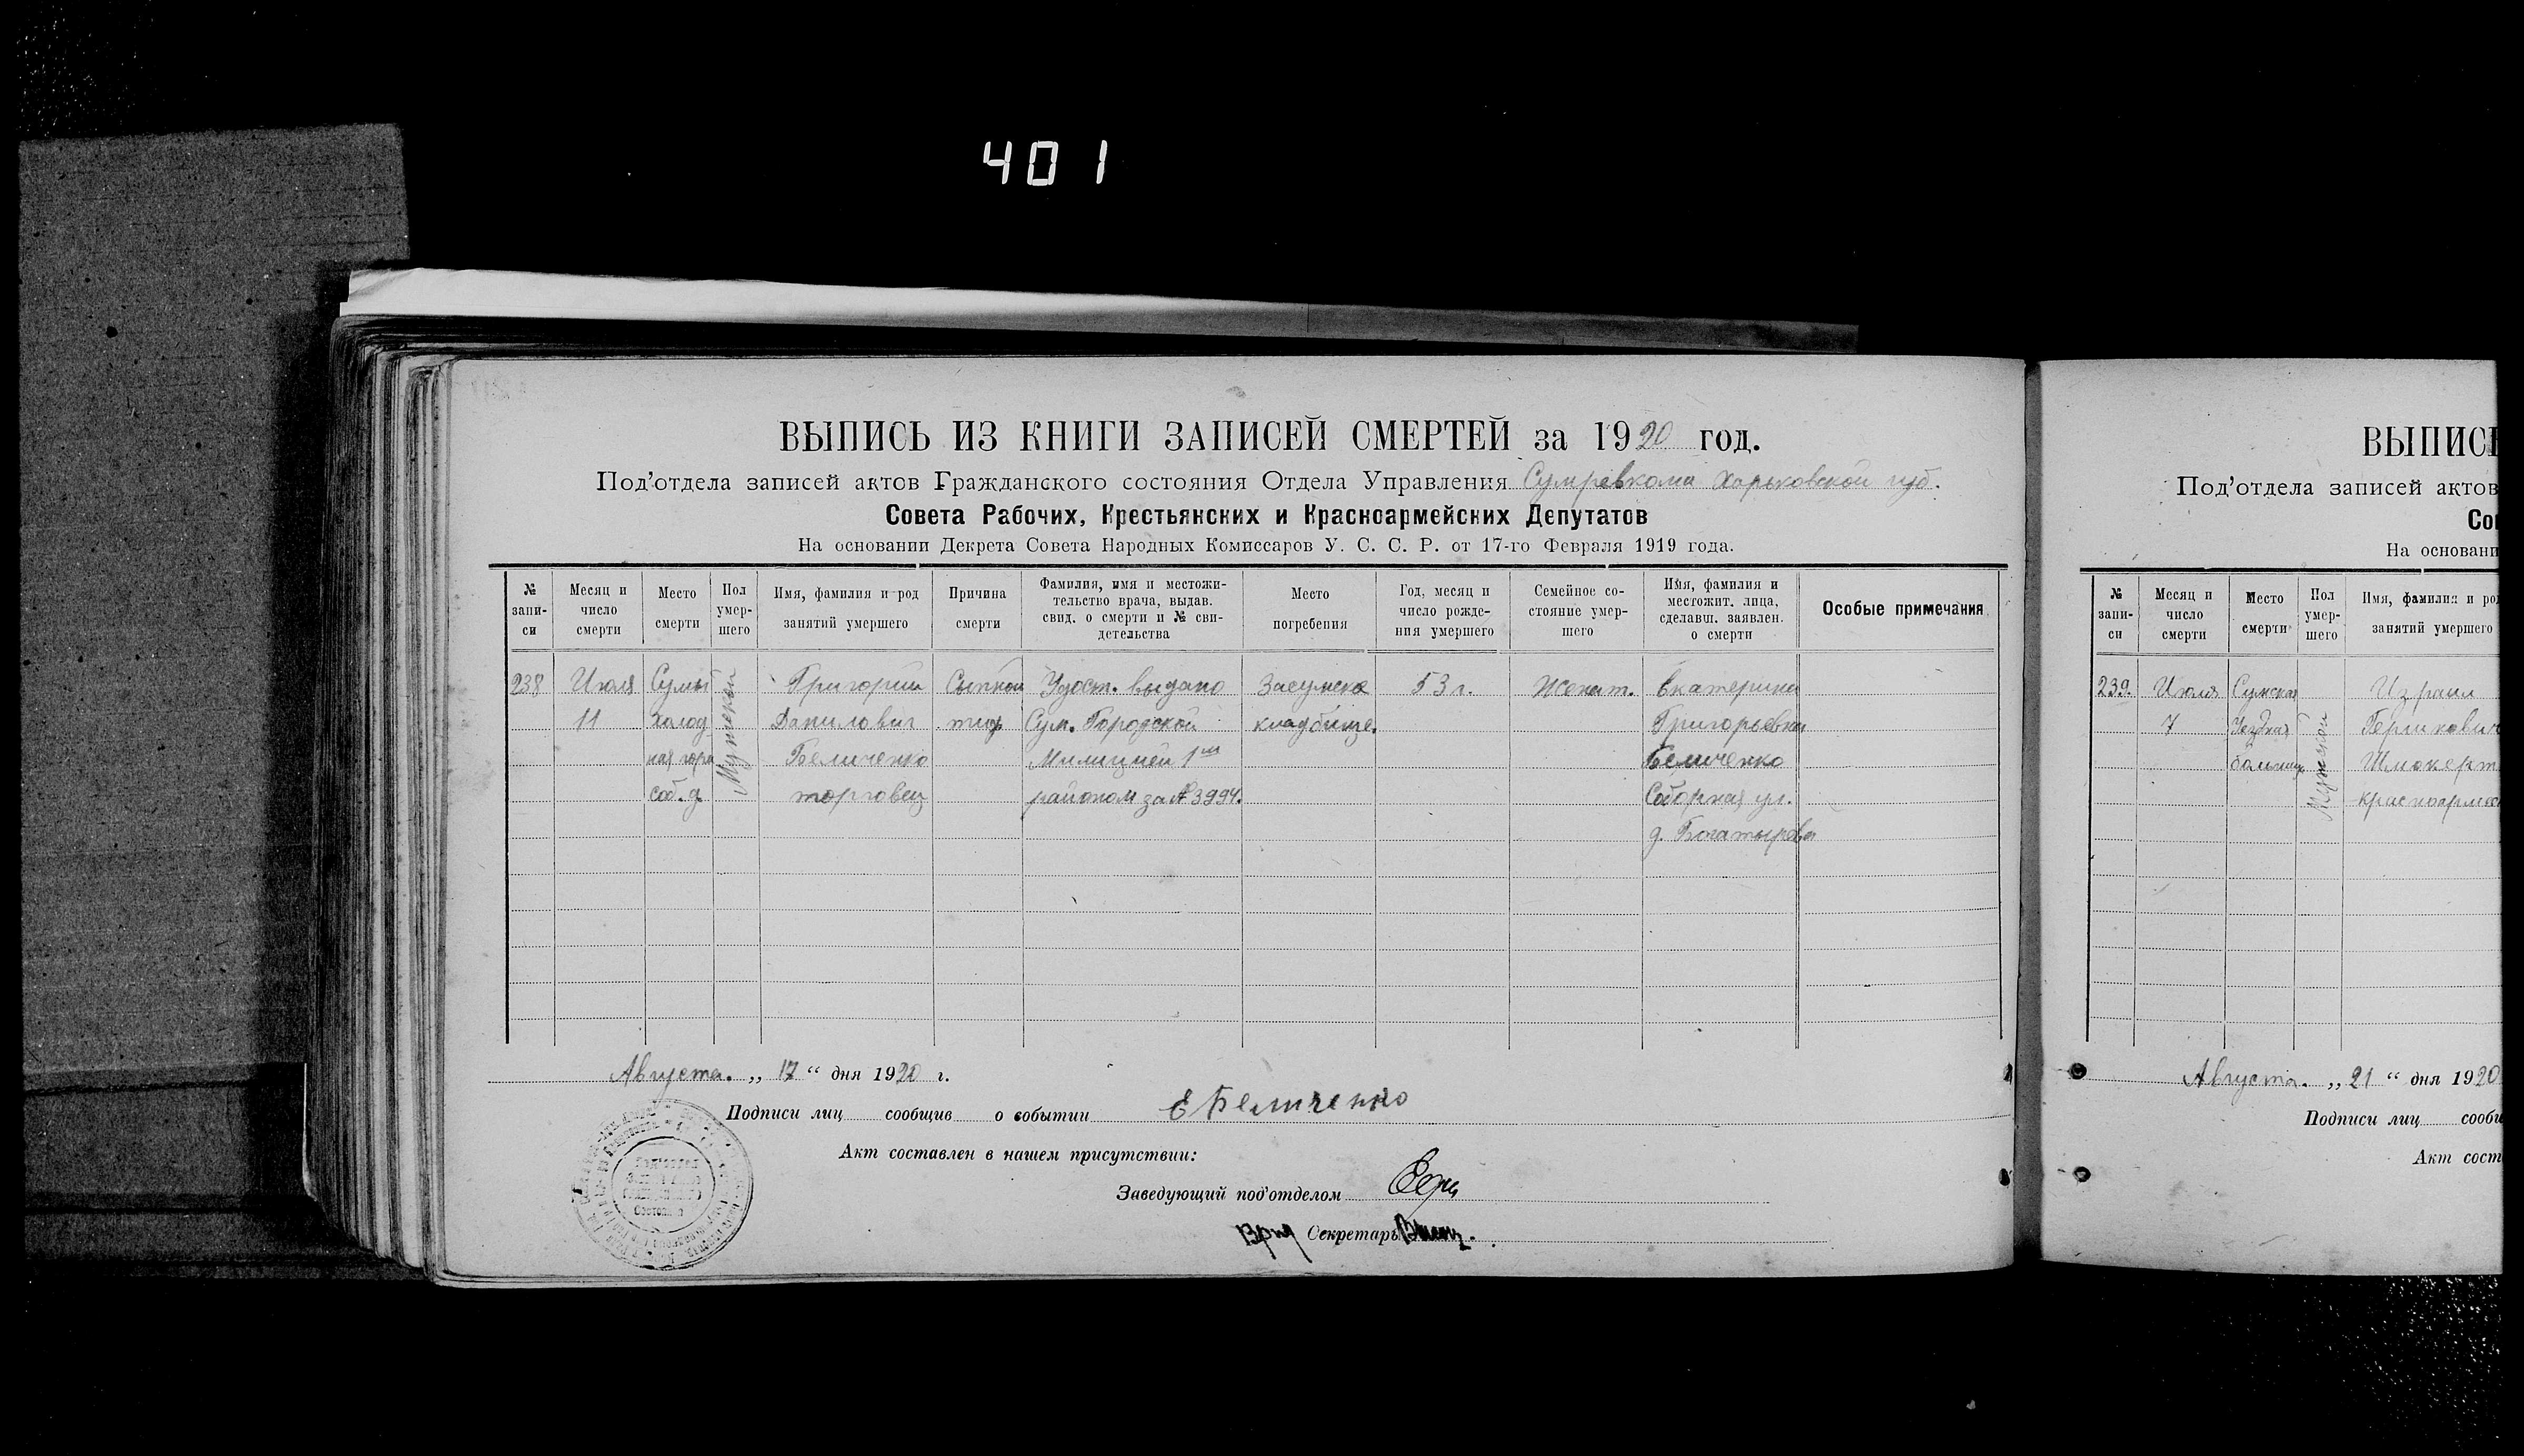 401
ВЫПИСЬ ИЗ КНИГИ ЗАПИСЕЙ СМЕРТЕЙ за 1920 год.
Под'отдела записей актов Гражданского состояния Отдела Управления Сумревкома Харьковской губ.
Совета Рабочих, Крестьянских и Красноармейских Депутатов
На основании Декрета Совета Народных Комиссаров У. С. С. Р. от 17-го Февраля 1919 года.
№ запи-
си
Месяц и
число
смерти
Место
смерти
Пол
умер-
шего
Имя, фамилия и род
занятий умершего
Причина
смерти
Фамилия, имя и местожи-
тельство врача, выдав.
свид. о смерти и № сви-
детельства
Место
погребения
Год, месяц и
число рожде-
ния умершего
Семейное со-
стояние умер-
шего
Имя, фамилия и
местожит. лица,
сделавш. заявлен.
о смерти
Особые примечания
238
Июля
11
Сумы
холод
ная гора
соб. д.
Мужской
Григорий
Данилович
Беличенко
торговец
Сыпной
тиф
Удост. выдано
Сум. Городской
Милицией 1
районом за № 3994.
Засумское
кладбище.
53 г.
Женат.
Екатерина
Григорьевна
Беличенко
Соборная ул.
д. Богатырева
Августа. „ 17 “ дня 1920 г.
Подписи лиц сообщив о событии Е Беличенко
Акт составлен в нашем присутствии:
Заведующий под'отделом
Врид Секретарь
ВЫПИСЬ
Под'отдела записей актов
Со
На основани
№
запи-
си
Месяц и
число
смерти
Место
смерти
Пол
умер-
шего
Имя, фамилия и род
занятий умершего
239.
Июля
7
Сумская
Уездная
больниц
Мужской
Израил
Шмокерт
красноарме
Августа. „ 21 “ дня 1920
Подписи лиц сообщ
Акт сост